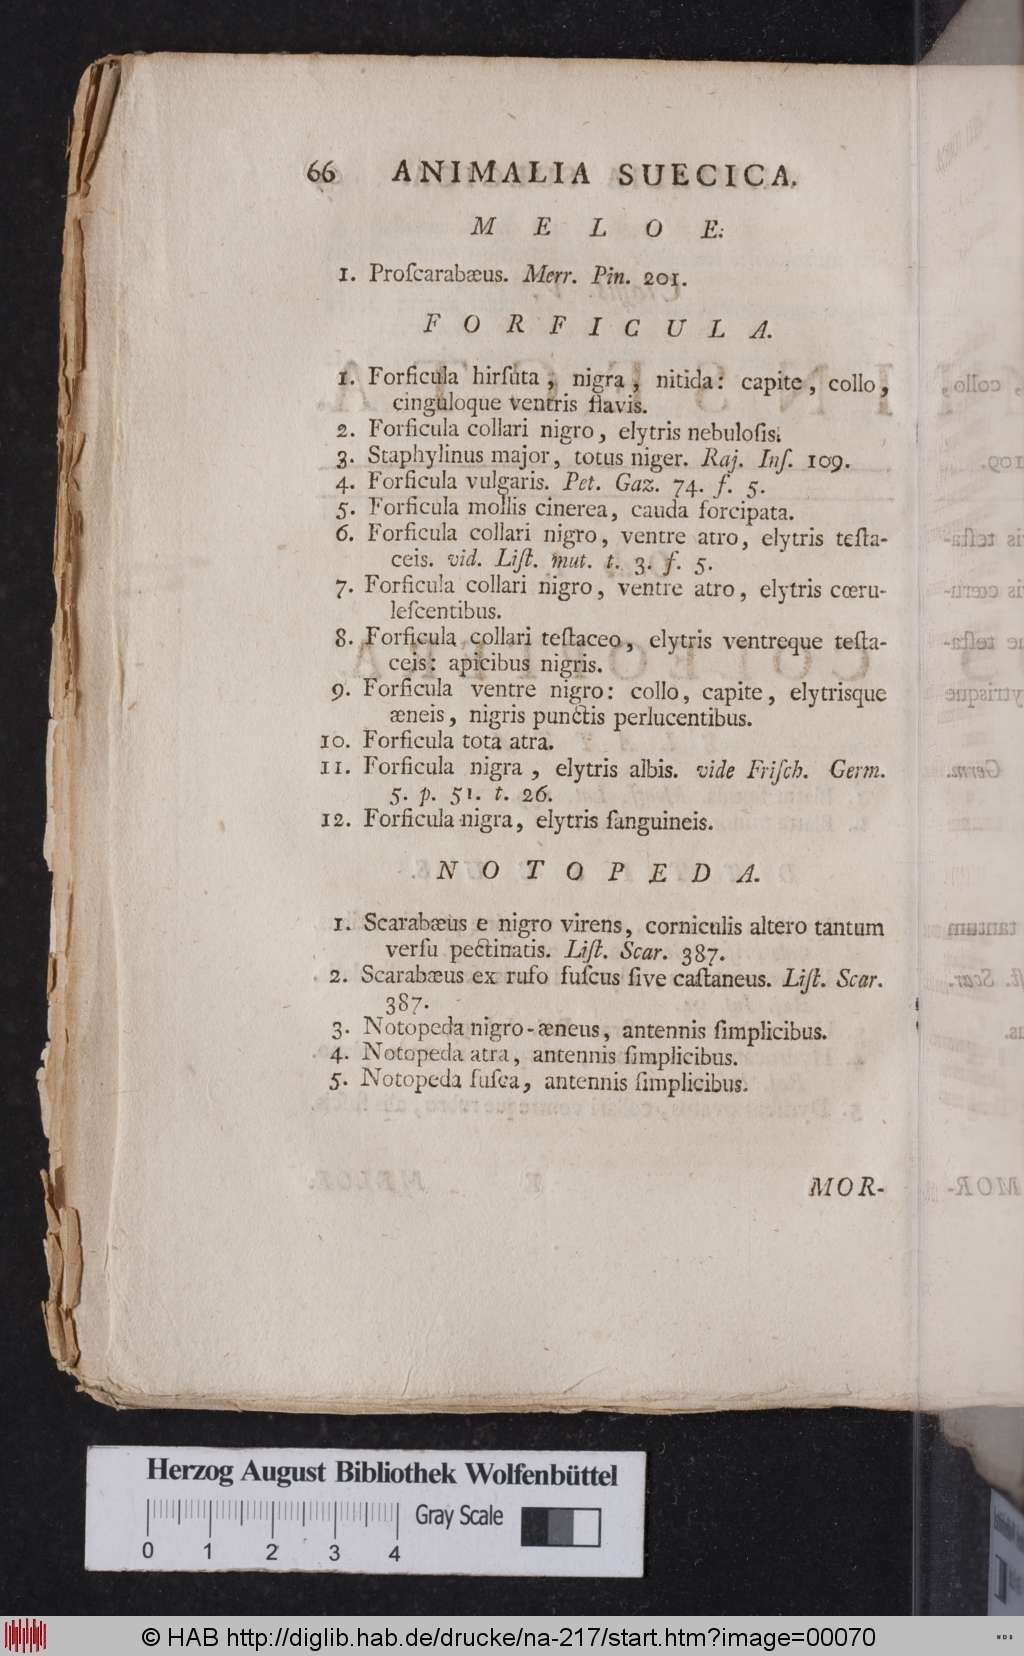 66 ANIMALIA SUECICA.
M E L O E.
1. Proſcarabæus. Merr. Pin. 201.
F O R F I C U L A.
1. Forficula hirſuta, nigra, nitida: capite, collo,
cinguloque ventris flavis.
2. Forficula collari nigro, elytris nebuloſis.
3. Staphylinus major, totus niger. Raj. Inſ. 109.
4. Forficula vulgaris. Pet. Gaz. 74. f. 5.
5. Forficula mollis cinerea, cauda forcipata.
6. Forficula collari nigro, ventre atro, elytris teſta-
ceis. vid. Liſt. mut. t. 3. f. 5.
7. Forficula collari nigro, ventre atro, elytris cœru-
leſcentibus.
8. Forficula collari teſtaceo, elytris ventreque teſta-
ceis: apicibus nigris.
9. Forficula ventre nigro: collo, capite, elytrisque
æneis, nigris punctis perlucentibus.
10. Forficula tota atra.
11. Forficula nigra, elytris albis. vide Friſch. Germ.
5. p. 51. t. 26.
12. Forficula nigra, elytris ſanguineis.
N O T O P E D A.
1. Scarabæus e nigro virens, corniculis altero tantum
verſu pectinatis. Liſt. Scar. 387.
2. Scarabæus ex rufo fuſcus ſive caſtaneus. Liſt. Scar.
387.
3. Notopeda nigro-æneus, antennis ſimplicibus.
4. Notopeda atra, antennis ſimplicibus.
5. Notopeda fuſca, antennis ſimplicibus.
MOR-
Herzog August Bibliothek Wolfenbüttel
Gray Scale
0 1 2 3 4
© HAB http://diglib.hab.de/drucke/na-217/start.htm?image=00070